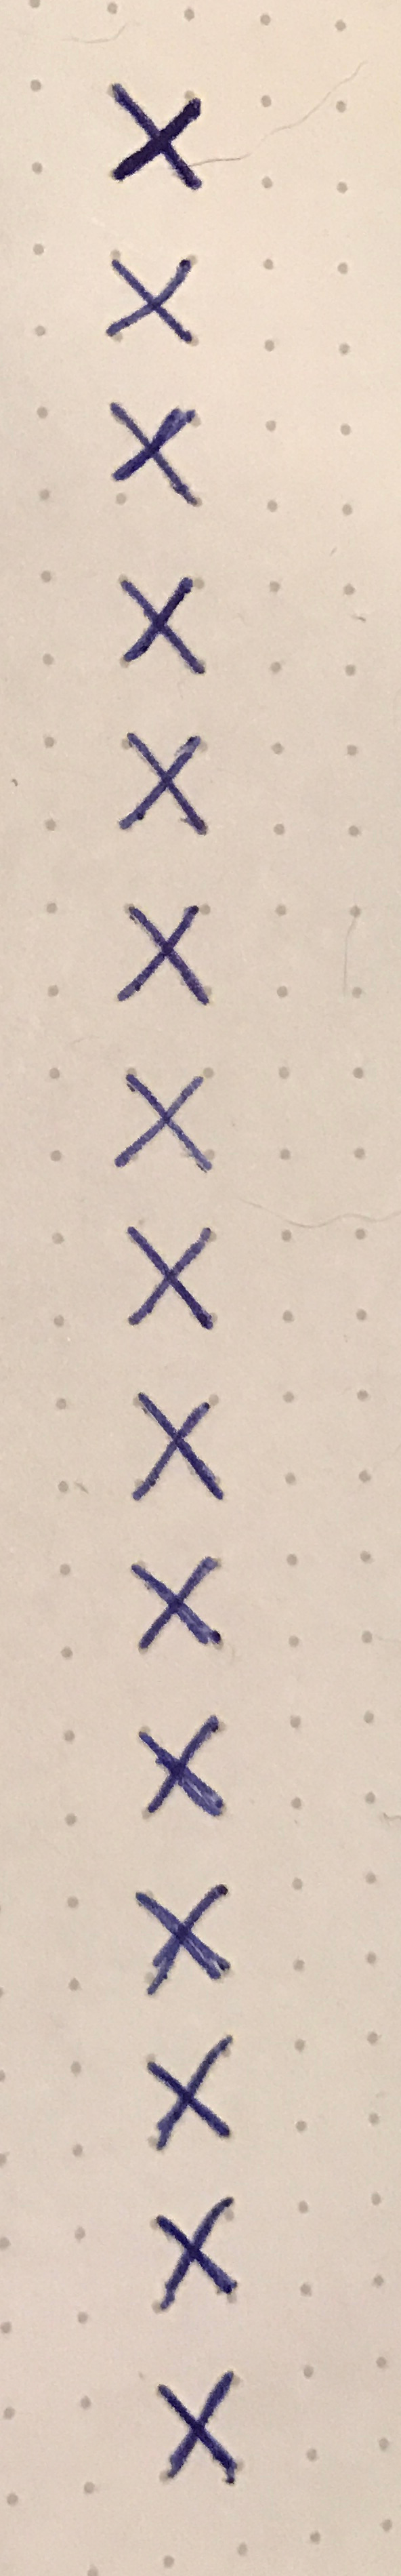 X
X
X
X
X
X
X
X
X
X
X
X
X
X
X